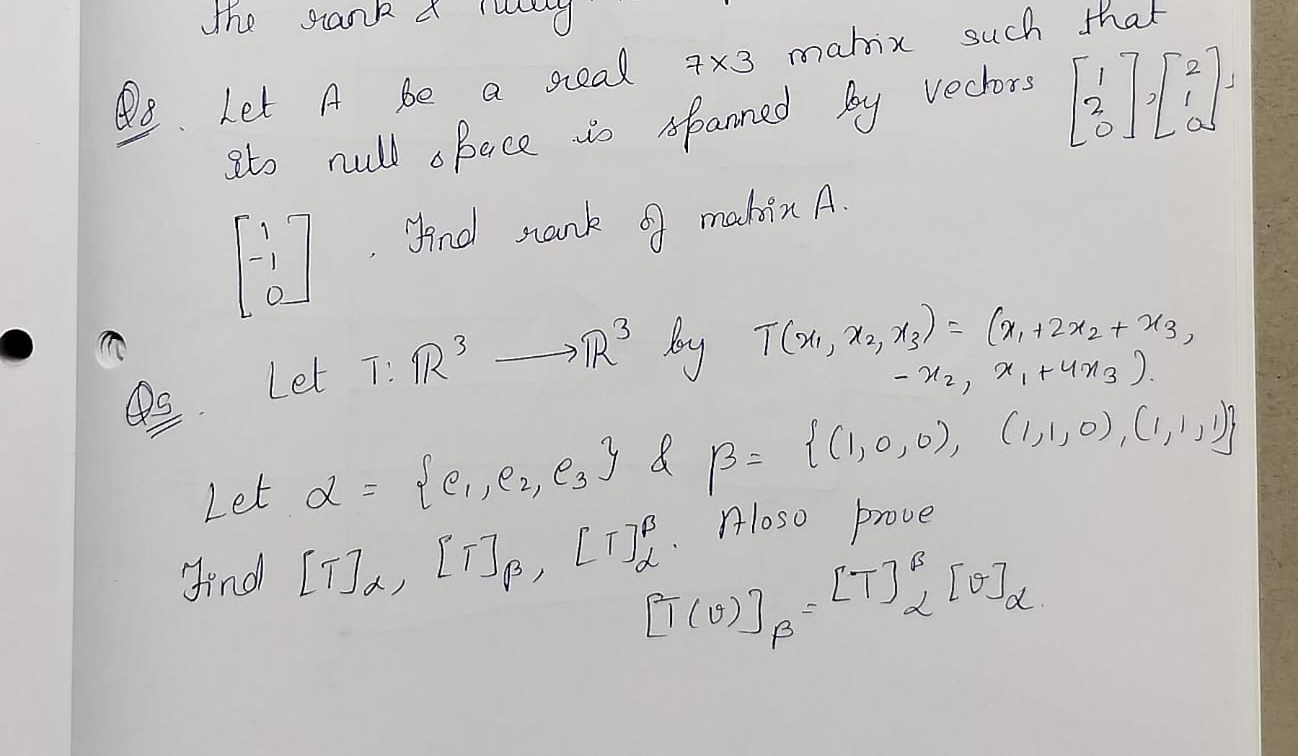 the rank &
Q8. Let A be a real 7×3 matrix such that
its null space is spanned by vectors [1 2 0], [2 1 0],
[1 -1 0]. Find rank of matrix A.
Q9. Let T: ℝ³ ⟶ ℝ³ by T(x₁, x₂, x₃) = (x₁ + 2x₂ + x₃,
- x₂, x₁ + 4x₃).
Let α = {e₁, e₂, e₃} & β = {(1,0,0), (1,1,0), (1,1,1)}
Find [T]_α, [T]_β, [T]_α^β. Aloso prove
[T(v)]_β = [T]_α^β, [v]_α.